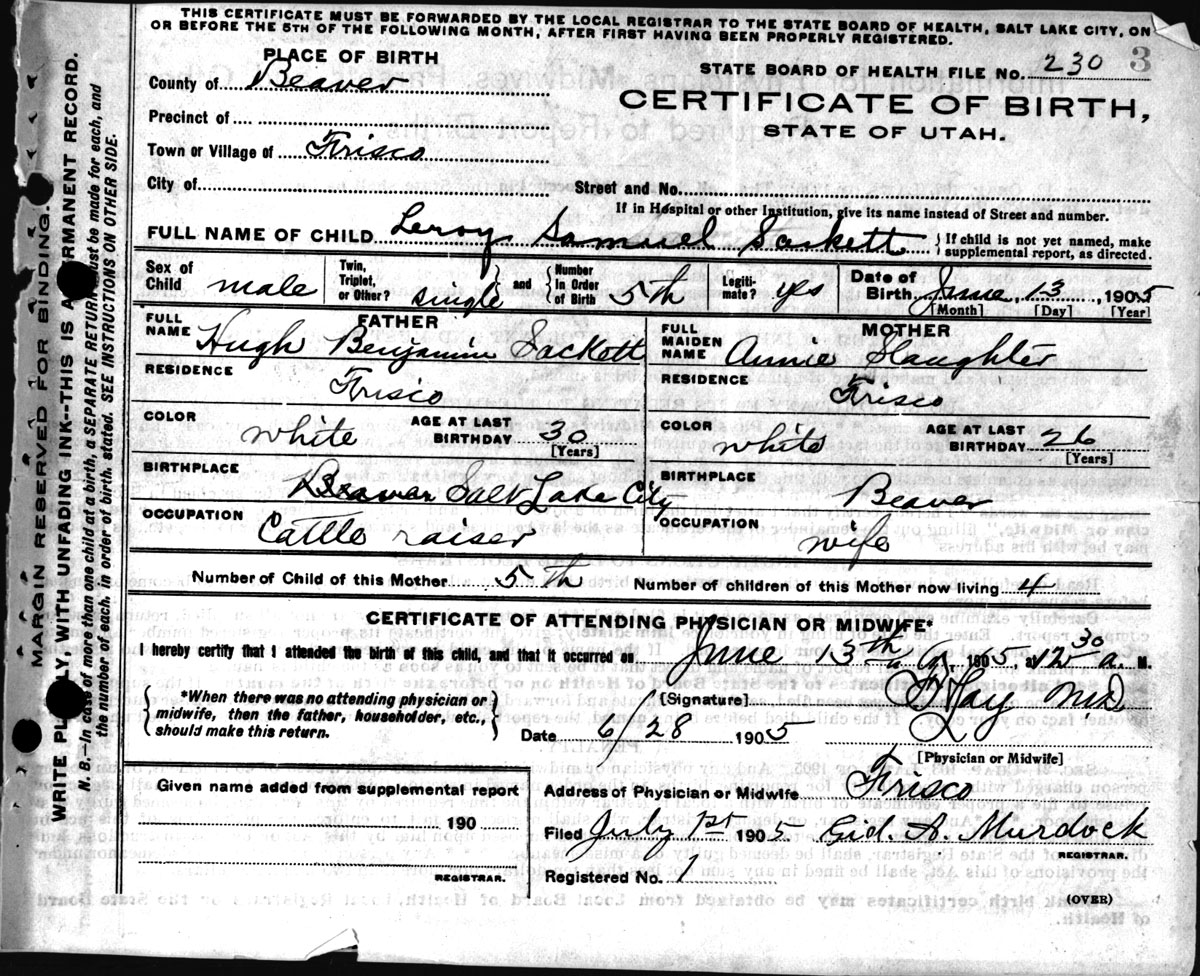 THIS CERTIFICATE MUST BE FORWARDED BY THE LOCAL REGISTRAR TO THE STATE BOARD OF HEALTH, SALT LAKE CITY, ON
OR BEFORE THE 5TH OF THE FOLLOWING MONTH, AFTER FIRST HAVING BEEN PROPERLY REGISTERED.
PLACE OF BIRTH
STATE BOARD OF HEALTH FILE No. 230 3
County of Beaver
CERTIFICATE OF BIRTH,
STATE OF UTAH.
Precinct of
Town or Village of Frisco
City of
Street and No.
If in Hospital or other Institution, give its name instead of Street and number.
FULL NAME OF CHILD Leroy Samuel Sackett
{ If child is not yet named, make
supplemental report, as directed.
Sex of Child male
Twin, Triplet, or Other? single
and { Number In Order of Birth 5th
Legiti- mate? yes
Date of Birth June 13, 1905
[Month] [Day] [Year]
FATHER
FULL NAME Hugh Benjamin Sackett
RESIDENCE Frisco
COLOR white
AGE AT LAST BIRTHDAY 30
[Years]
BIRTHPLACE Beaver Salt Lake City
OCCUPATION Cattle raiser
MOTHER
FULL MAIDEN NAME Annie Slaughter
RESIDENCE Frisco
COLOR white
AGE AT LAST BIRTHDAY 26
[Years]
BIRTHPLACE Beaver
OCCUPATION wife
Number of Child of this Mother 5th
Number of children of this Mother now living 4
CERTIFICATE OF ATTENDING PHYSICIAN OR MIDWIFE*
I hereby certify that I attended the birth of this child, and that it occurred on June 13th 1905, at 12 30 a. M.
{ *When there was no attending physician or
midwife, then the father, householder, etc.,
should make this return. }
[Signature] Hay MD
Date 6/28 1905
[Physician or Midwife]
Address of Physician or Midwife Frisco
Given name added from supplemental report
190
REGISTRAR.
Filed July 1st 1905 Gid. A. Murdock
REGISTRAR.
Registered No. 1
(OVER)
MARGIN RESERVED FOR BINDING.
WRITE PLAINLY, WITH UNFADING INK--THIS IS A PERMANENT RECORD.
N. B.--In case of more than one child at a birth, a SEPARATE RETURN must be made for each, and
the number of each, in order of birth, stated. SEE INSTRUCTIONS ON OTHER SIDE.